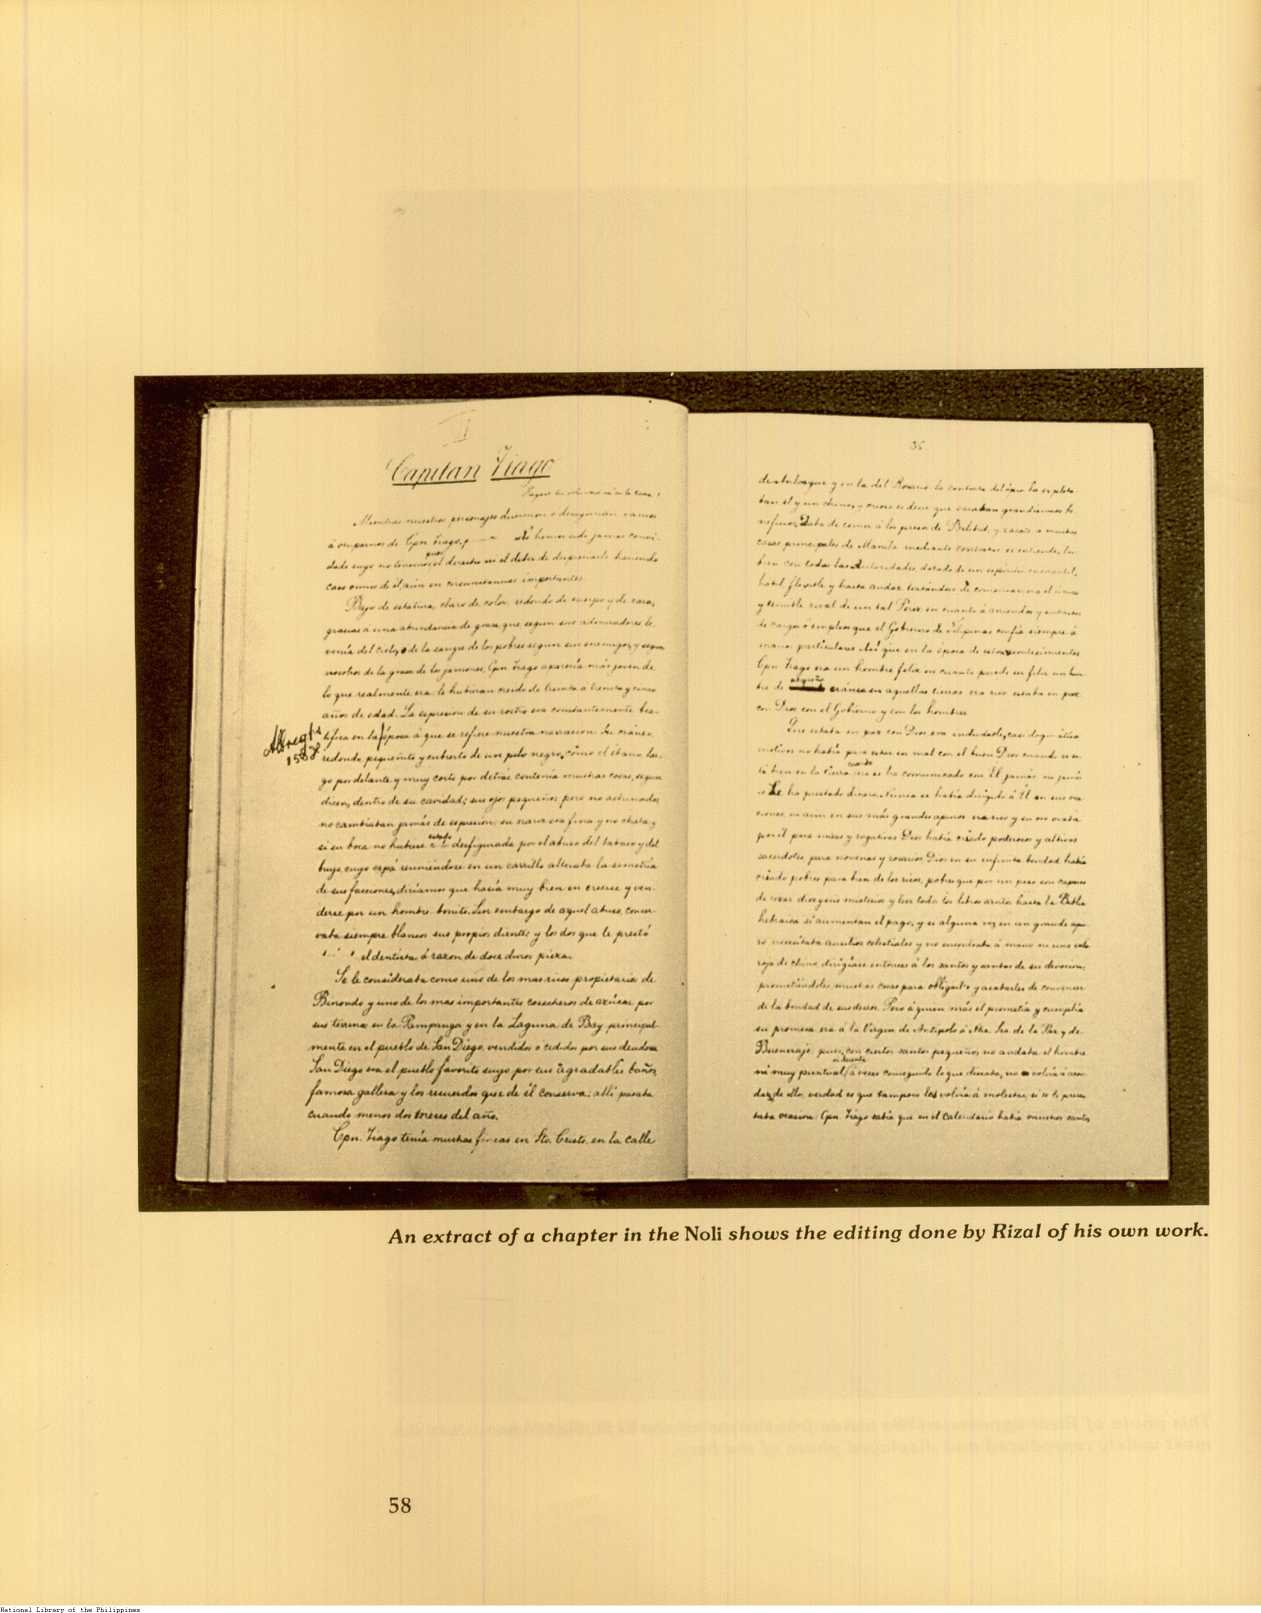 Capitan Tiago
Mientras nuestros personajes duermen o desayunan vamos
á ocuparnos de Cpn. Tiago, hemos sido jamas convi-
pues
dado suyo no tenemos el derecho ni el deber de despreciarle haciendo
caso omiso de él, aún en circunstancias importantes.
Bajo de estatura, claro de color, redondo de cuerpo y de cara,
gracias á una abundancia de grasa, que segun sus admiradores le
venía del Cielo, de la sangre de los pobres segun sus enemigos, y segun
nosotros de la grasa de los jamones, Cpn. Tiago aparecía más joven de
lo que realmente era: le hubieran creido de treinta á treinta y cinco
años de edad. La espresion de su rostro era constantemente bea-
tífica en la época á que se refiere nuestra narracion. Su cráneo
redondo, pequeñito y cubierto de un pelo negro, como el ébano, lar-
go por delante y muy corto por detrás contenía muchas cosas, segun
dicen, dentro de su cavidad; sus ojos pequeños pero no achinados,
no cambiaban jamás de espresion; su nariz era fina y no chata, y
estado
si su boca no hubiese desfigurada por el abuso del tabaco y del
buyo, cuyo sapá reuniéndose en un carrillo alteraba la simetría
de sus facciones, diríamos que hacía muy bien en creerse y ven-
derse por un hombre bonito. Sin embargo de aquel abuso, conser-
vaba siempre blancos sus propios dientes y los dos que le prestó
el dentista á razon de doce duros pieza.
Se le consideraba como uno de los mas ricos propietarios de
Binondo y uno de los mas importantes cosecheros de azúcar por
sus terrenos en la Pampanga y en la Laguna de Bay, principal-
mente en el pueblo de San Diego, vendidos o cedidos por sus deudores
San Diego era el pueblo favorito suyo por sus agradables baños,
famosa gallera y los recuerdos que de él conserva: allí pasaba
cuando menos dos meses del año.
Cpn. Tiago tenía muchas fincas en Sto. Cristo, en la calle
36
de Anloague y en la del Rosario. la contrata del ópio la esplota-
ban él y un chino, y ocioso es decir que sacaban grandísimos be-
neficios. Daba de comer á los presos de Bilibid, y zacate a muchas
casas principales de Manila mediante contratos se entiende. En
bien con todas las Autoridades, dotado de un espíritu
hábil, flexible y hasta audaz tratándose de
y temible rival de un tal Perez, en cuanto á arriendos y
de cargos ó empleos que el Gobierno de Filipinas confía siempre á
manos particulares. Así que en la época de estos acontecimientos
Cpn. Tiago era un hombre feliz en cuanto puede ser feliz un hom-
pequeño
bre de cráneo en aquellas tierras: era rico, estaba en paz
con Dios, con el Gobierno y con los hombres.
Que estaba en paz con Dios era indudable, casi dogmático:
motivos no había para estar en mal con el buen Dios cuando se es-
cuando
tá bien en la tierra, no se ha comunicado con Él jamás, ni jamás
se Le ha prestado dinero. Nunca se había dirigido á Él en sus ora-
ciones, ni aún en sus más grandes apuros: era rico y su oro oraba
por él: para misas y rogativas Dios había criado poderosos y altivos
sacerdotes; para novenas y rosarios Dios en su infinita bondad había
criado pobres para bien de los ricos, pobres que por un peso son capaces
de rezar diez y seis misterios y leer todos los libros santos hasta la Biblia
hebraica si aumentan el pago; y si alguna vez en un grande apu-
ro necesitaba auxilios celestiales y no encontraba á mano ni una vela
roja de chino, dirigíase entonces á los santos y santas de su devocion,
prometiéndoles muchas cosas para obligarlos y acabarles de convencer
de la bondad de sus deseos. Pero á quien más él prometía y cumplía
su promesa era á la Vírgen de Antipolo á Ntra. Sra. de la Paz y de
Buenviaje: pues, con ciertos santos pequeños, no andaba el hombre
ni muy puntual
á veces conseguido lo que deseaba, no volvía á acor-
darse de ello, verdad es que tampoco los volvía á molestar, si se le presen-
taba ocasion: Cpn. Tiago sabía que en el Calendario había muchos santos
An extract of a chapter in the Noli shows the editing done by Rizal of his own work.
58
National Library of the Philippines